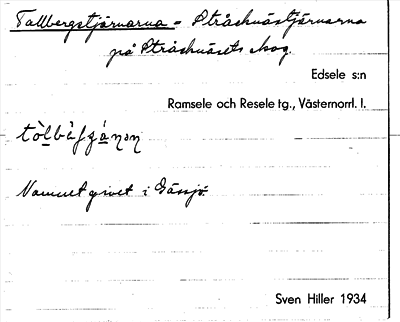 Tallbergstjärnarna = Stråsknästjärnarna
på Stråsknäsets skog.
Edsele s:n
Ramsele och Resele tg., Västernorrl. l.
Namnet givet i Gässjö.
Sven Hiller 1934